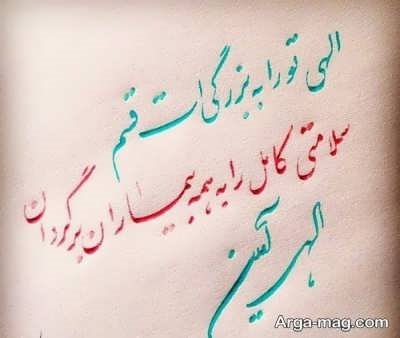 الهی تو را به بزرگی ات قسم
سلامتی کامل را به همه بیماران برگردان
الهی آمین
Arga-mag.com